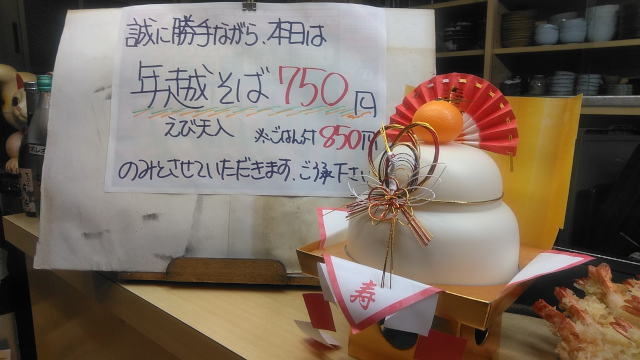 誠に勝手ながら、本日は
年越そば 750円
えび天入 ※ごはん付 850円
のみとさせていただきます、ご了承下さい
寿